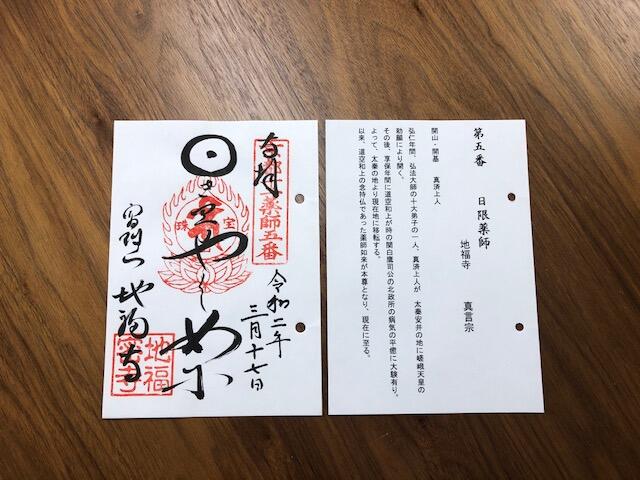 奉拝
薬師五番
令和二年
三月十七日
地福寺
第五番　日限薬師
地福寺　真言宗
開山・開基　真済上人
弘仁年間、弘法大師の十大弟子の一人、真済上人が、太秦安井の地に嵯峨天皇の
勅願により開く。
その後、享保年間に道空和上が時の関白鷹司公の北政所の病気の平癒に大験有り。
よって、太秦の地より現在地に移転する。
以来、道空和上の念持仏であった薬師如来が本尊となり、現在に至る。